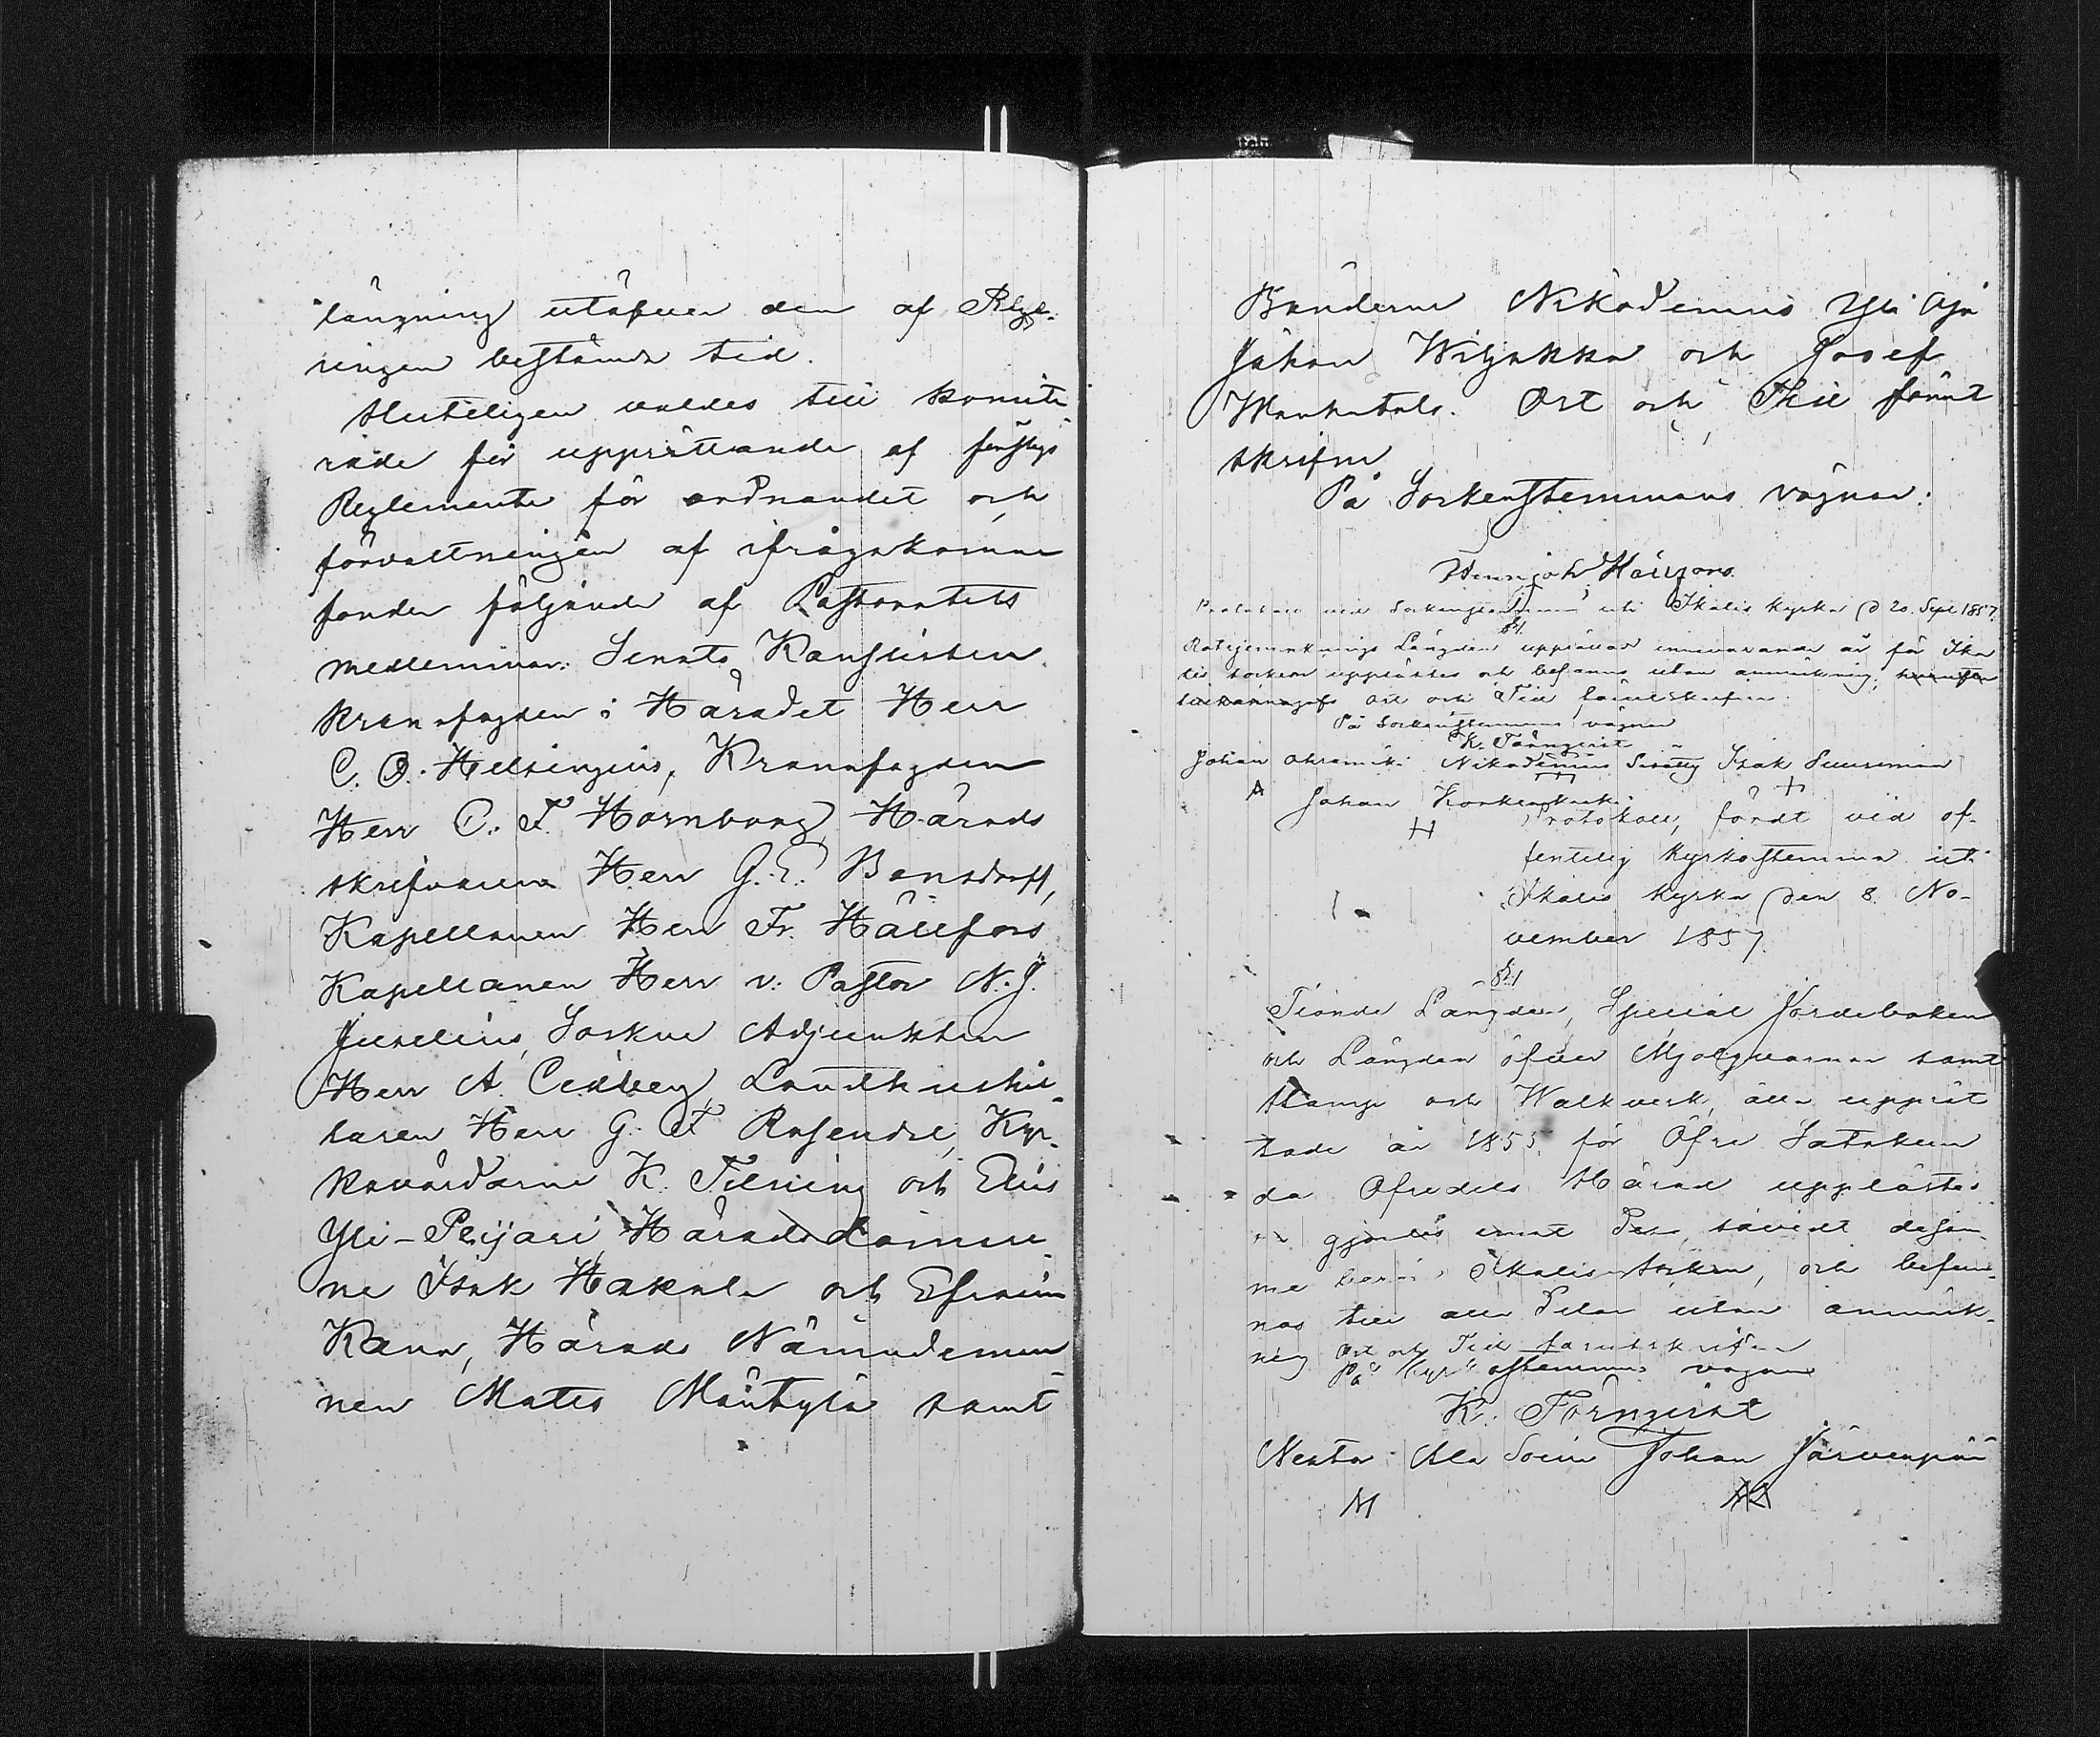 längning utöfver den af Regl.
ringen bestämda tid.
Slutligen valdes till komite-
rade för upprättande af förslags
Reglemente för ordnandet och
förvaltningen af ifrågakomne
fonder följande af Pastoratets
medlemmar: Senats Kanslisten
kronofogden i Häradet Herr
C. O. Helsingius, Kronofogden
Herr C. F. Hornborg, Härads
skrifvaren Herr G. E. Bonsdorff,
Kapellanen Herr Fr. Hällfors
Kapellanen Herr v. Pastor N. J.
Juselius, Sockne Adjunkten
Herr A. Cedberg, Landthushål-
laren Herr G. F. Rosendal, Kyr-
kovärdarne K. Filning och Elias
Yli-Peijari, Härads Domare-
ne Isak Hakala och Efraim
Kann, Härads Nämndemän-
nen Matts Mäntylä samt
Bönderne Nikodemus Yli Äjö
Johan Wiljakka och Josef
Mankatalo. Ort och Tid såmt
skrifne
På Sockenstemmans vägnar:
Hällfors
Protokoll vid Sockenstemma uti Ikalis kyrka d 20. Sept 1857.
§1.
Längden upprättad innevarande år för Ika
lis socken upplästes och befanns utan anmärkning;
Ort och Tid samtskrifne
På Sockenstemmans vägnar
K. Törnqvist
Johan Nikodemus Isak Suuriniemi
A + +
Johan
H
Protokoll, fördt vid of-
fentelig kyrkostemma uti
Ikalis kyrka den 8. No-
vember 1857.
§.1
Tionde Längden, Special Jordeboken
och Längden öfver Mjölqvarnar samt
Stamp och Walkverk, alla upprät
tade år 1855, för Öfre Satakun
da Öfredels Härad upplästes
gjordes den såvidt desam-
me Ikalis socken, och befun-
nos till alla delar utan anmärk-
ning Ort och Tid samtskrifne
På Kyrkostemmans vägnar
K. Törnqvist
Nestor Ala Soini Johan Järvenpää
M